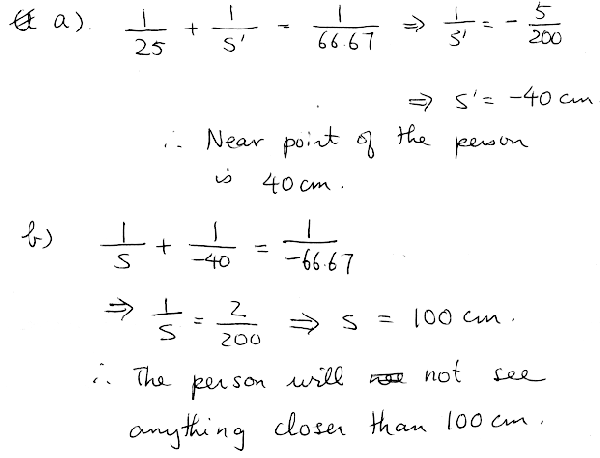 a). 1/25 + 1/S' = 1/66.67 ⇒ 1/S' = - 5/200
⇒ S' = -40 cm
∴ Near point of the person
is 40 cm.
b) 1/S + 1/-40 = 1/-66.67
⇒ 1/S = 2/200 ⇒ S = 100 cm.
∴ The person will not see
anything closer than 100 cm.